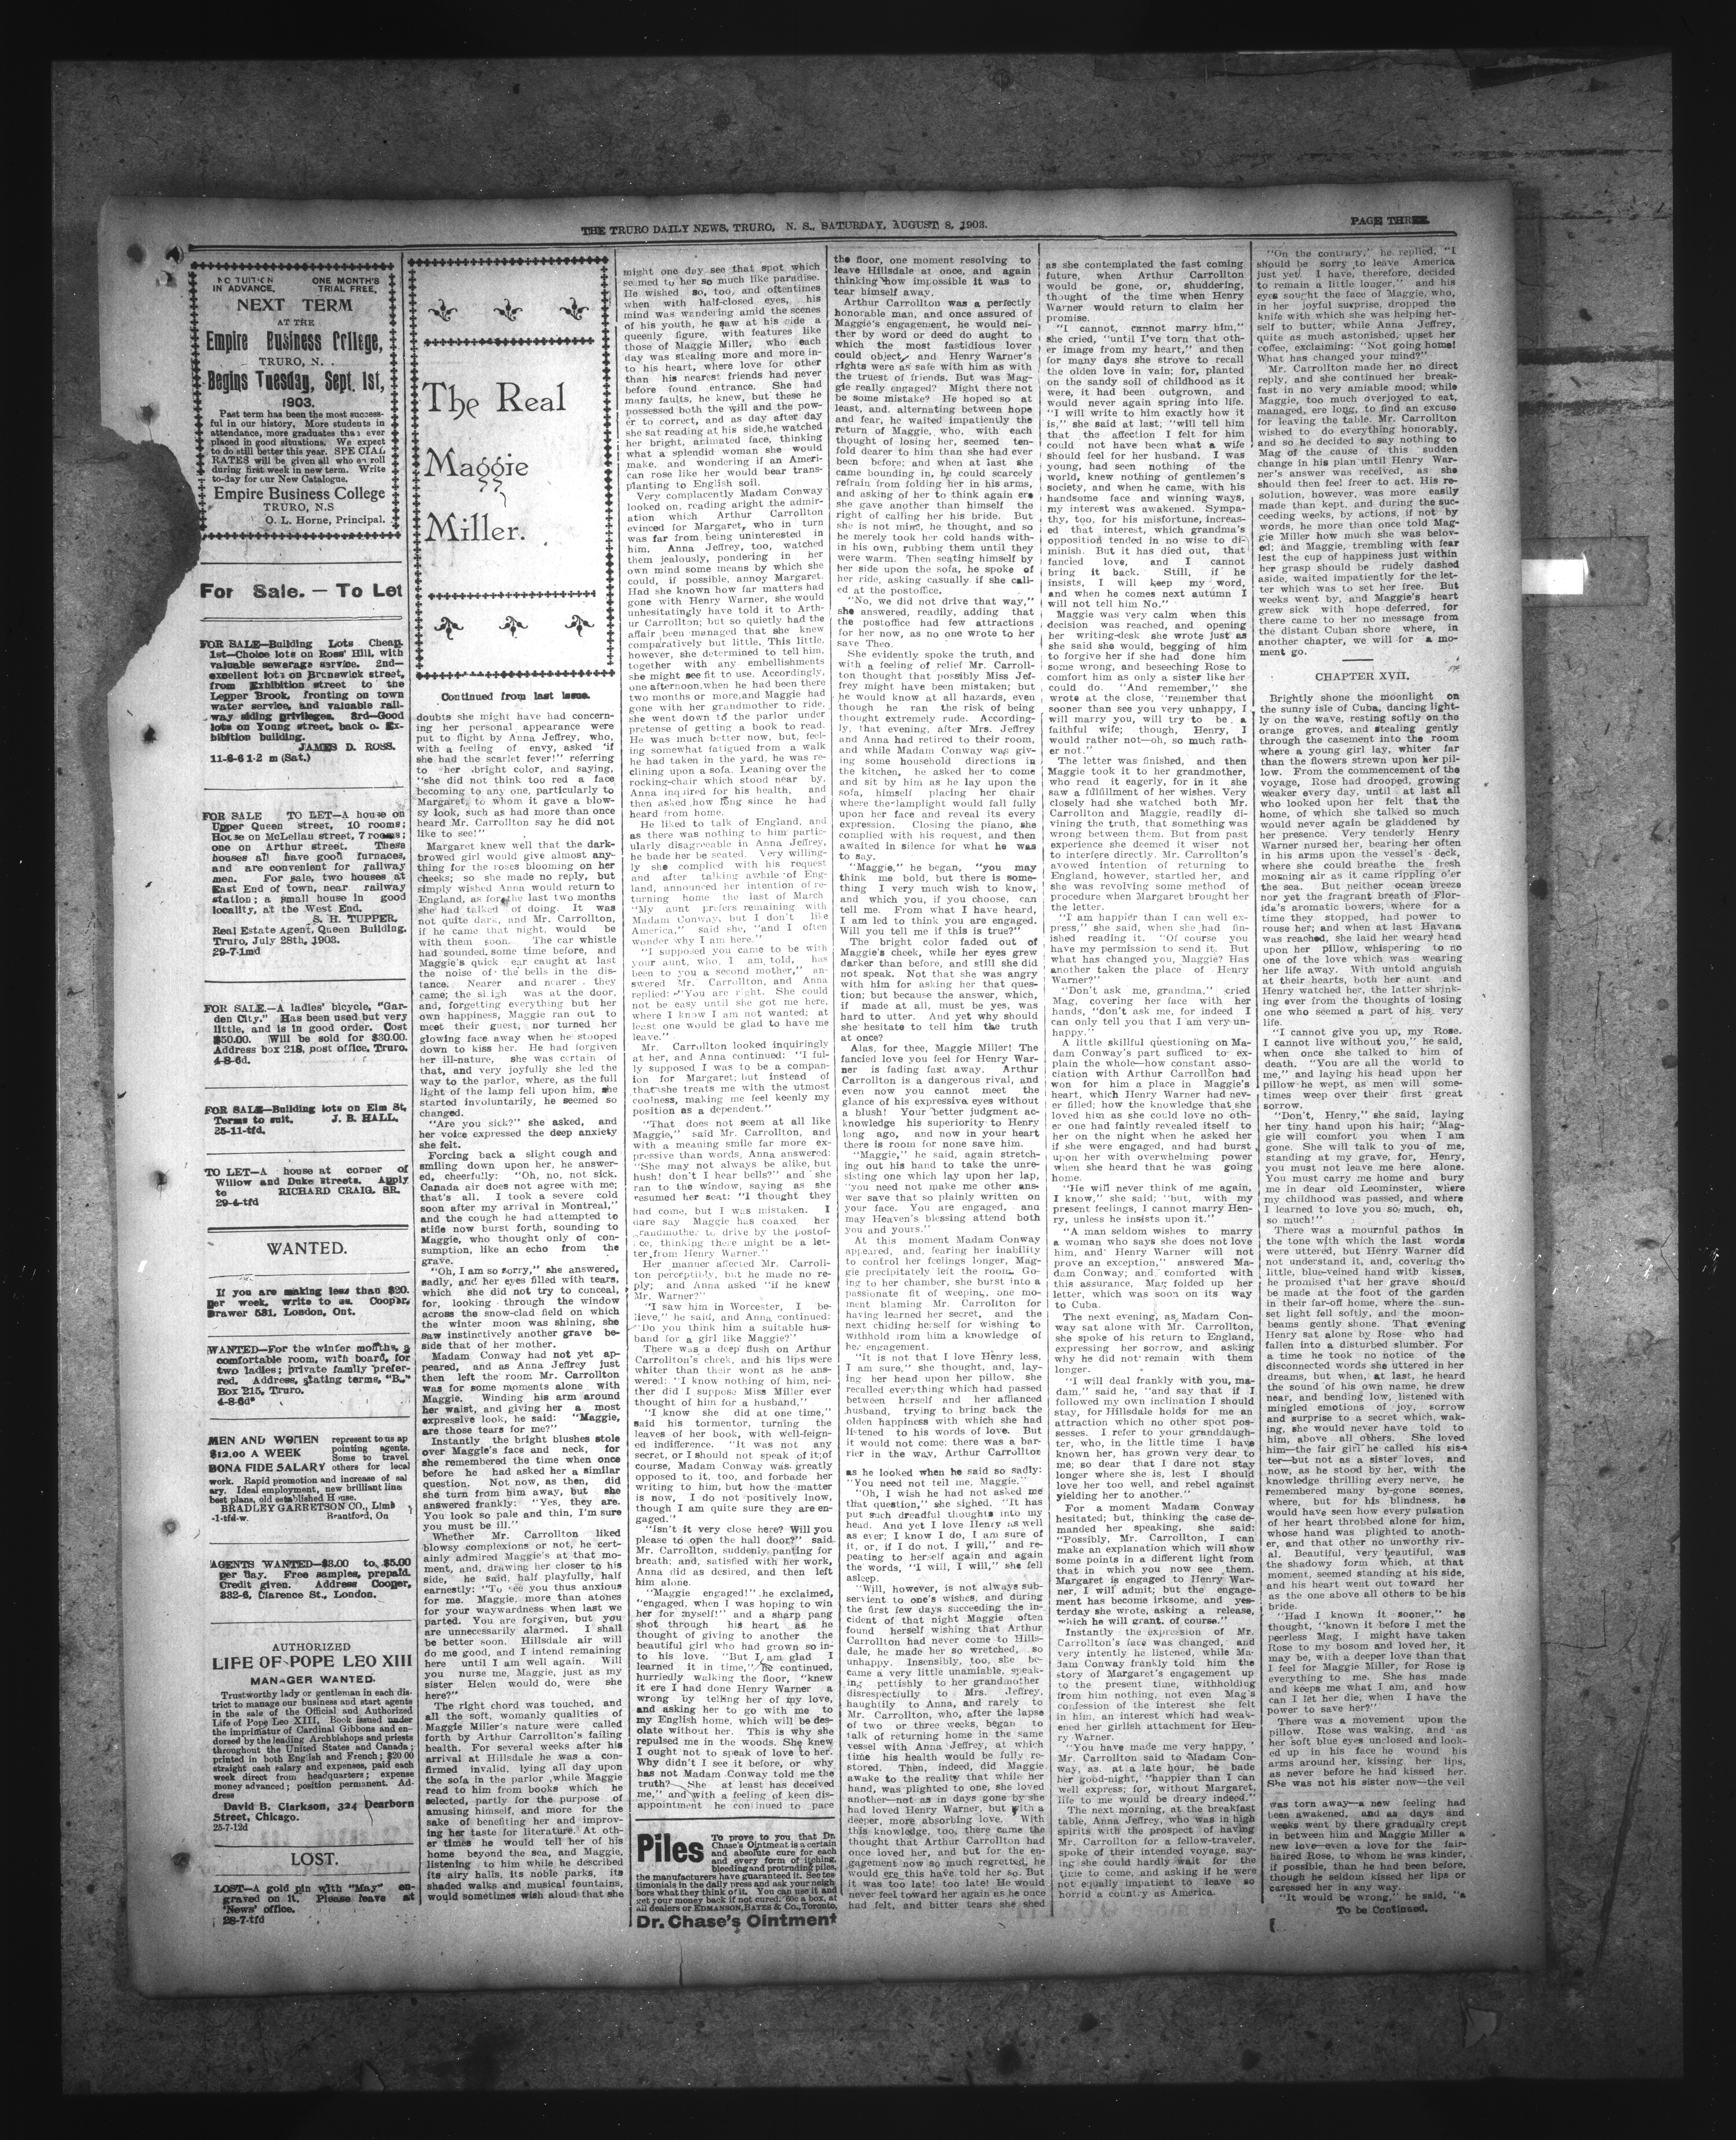 THE TRURO DAILY NEWS, TRURO, N. S., SATURDAY, AUGUST 8, 1903.
PAGE THREE.
NO TUITION ONE MONTH'S
IN ADVANCE. TRIAL FREE.
NEXT TERM
AT THE
Empire Business College,
TRURO, N. .
Begins Tuesday, Sept. 1st,
1903.
Past term has been the most success-
ful in our history, More students in
attendance, more graduates than ever
placed in good situations. We expect
to do still better this year. SPECIAL
RATES will be given all who enroll
during first week in new term. Write
to-day for our New Catalogue.
Empire Business College
TRURO, N.S
O. L. Horne, Principal.
For Sale. — To Let
FOR SALE—Building Lots Cheap.
1st—Choice lots on Ross' Hill, with
valuable sewerage service. 2nd—
excellent lots on Brunswick street,
from Exhibition street to the
Lepper Brook, fronting on town
water service, and valuable rail-
way siding privileges. 3rd—Good
lots on Young street, back o. Ex-
hibition building.
JAMES D. ROSS.
11-6-6 1-2 m (Sat.)
FOR SALE TO LET—A house on
Upper Queen street, 10 rooms;
House on McLellan street, 7 rooms;
one on Arthur street. These
houses all have good furnaces,
and are convenient for railway
men. For sale, two houses at
East End of town, near railway
station; a small house in good
locality, at the West End.
S. H. TUPPER,
Real Estate Agent, Queen Building.
Truro, July 28th, 1903.
29-7-1md
FOR SALE.—A ladies' bicycle, "Gar-
den City." Has been used but very
little, and is in good order. Cost
$50.00. Will be sold for $30.00.
Address box 218, post office, Truro.
4-8-6d.
FOR SALE—Building lots on Elm St,
Terms to suit. J. B. HALL.
25-11-tfd.
TO LET—A house at corner of
Willow and Duke streets. Apply
to RICHARD CRAIG, SR.
29-4-tfd
WANTED.
If you are making less than $20.
per week, write to us. Cooper,
Drawer 531, London, Ont.
WANTED—For the winter months, a
comfortable room, with board, for
two ladies; private family prefer-
red. Address, stating terms, "B.,"
Box 215, Truro.
4-8-6d*
MEN AND WOMEN represent to us ap
$12.00 A WEEK pointing agents.
Some to travel
BONA FIDE SALARY others for local
work. Rapid promotion and increase of sal
ary. Ideal employment, new brilliant line
best plans, old established House.
BRADLEY GARRETSON CO., Limt
-1-tfd-w. Brantford, On
AGENTS WANTED—$3.00 to $5.00
per day. Free samples, prepaid.
Credit given. Address Cooper,
332-6, Clarence St., London.
AUTHORIZED
LIFE OF POPE LEO XIII
MANAGER WANTED.
Trustworthy lady or gentleman in each dis-
trict to manage our business and start agents
in the sale of the Official and Authorized
Life of Pope Leo XIII, Book issued under
the imprimatur of Cardinal Gibbons and en-
dorsed by the leading Archbishops and priests
throughout the United States and Canada;
printed in both English and French; $20 00
straight cash salary and expenses, paid each
week direct from headquarters; expense
money advanced; position permanent. Ad-
dress
David B. Clarkson, 324 Dearborn
Street, Chicago.
25-7-12d
LOST.
LOST—A gold pin with "May" en-
graved on it. Please leave at
'News' office.
28-7-tfd
The Real
Maggie
Miller.
Continued from last issue.
doubts she might have had concern-
ing her personal appearance were
put to flight by Anna Jeffrey, who,
with a feeling of envy, asked "if
she had the scarlet fever!" referring
to her bright color, and saying,
"she did not think too red a face
becoming to any one, particularly to
Margaret, to whom it gave a blow-
sy look, such as had more than once
heard Mr. Carrollton say he did not
like to see!"
Margaret knew well that the dark-
browed girl would give almost any-
thing for the roses blooming on her
cheeks; so she made no reply, but
simply wished Anna would return to
England, as for the last two months
she had talked of doing. It was
not quite dark, and Mr. Carrllton,
if he came that night, would be
with them soon. The car whistle
had sounded some time before, and
Maggie's quick ear caught at last
the noise of the bells in the dis-
tance. Nearer and nearer they
came; the sleigh was at the door,
and, forgetting everything but her
own happiness, Maggie ran out to
meet their guest, nor turned her
glowing face away when he stooped
down to kiss her. He had forgiven
her ill-nature, she was certain of
that, and very joyfully she led the
way to the parlor, where, as the full
light of the lamp fell upon him, she
started involuntarily, he seemed so
changed.
"Are you sick?" she asked, and
her voice expressed the deep anxiety
she felt.
Forcing back a slight cough and
smiling down upon her, he answer-
ed, cheerfully: "Oh, no, not sick.
Canada air does not agree with me;
that's all. I took a severe cold
soon after my arrival in Montreal,"
and the cough he had attempted to
stifle now burst forth, sounding to
Maggie, who thought only of con-
sumption, like an echo from the
grave.
"Oh, I am so sorry," she answered,
sadly, and her eyes filled with tears,
which she did not try to conceal,
for, looking through the window
across the snow-clad field on which
the winter moon was shining, she
saw instinctively another grave be-
side that of her mother.
Madam Conway had not yet ap-
peared, and as Anna Jeffrey just
then left the room Mr. Carrollton
was for some moments alone with
Maggie. Winding his arm around
her waist, and giving her a most
expressive look, he said: "Maggie,
are those tears for me?"
Instantly the bright blushes stole
over Maggie's face and neck, for
she remembered the time when once
before he had asked her a similar
question. Not now, as then, did
she turn from him away, but she
answered frankly: "Yes, they are.
You look so pale and thin, I'm sure
you must be ill."
Whether Mr. Carrollton liked
blowsy complexions or not, he cert-
ainly admired Maggie's at that mo-
ment, and, drawing her closer to his
side, he said, half playfully, half
earnestly: "To see you thus anxious
for me, Maggie, more than atones
for your waywardness when last we
parted. You are forgiven, but you
are unnecessarily alarmed. I shall
be better soon. Hillsdale air will
do me good, and I intend remaining
here until I am well again. Will
you nurse me, Maggie, just as my
sister Helen would do, were she
here?"
The right chord was touched, and
all the soft, womanly qualities of
Maggie Miller's nature were called
forth by Arthur Carrollton's failing
health. For several weeks after his
arrival at Hillsdale he was a con-
firmed invalid, lying all day upon
the sofa in the parlor while Maggie
read to him from books which he
selected, partly for the purpose of
amusing himself, and more for the
sake of benefiting her and improv-
ing her taste for literature. At oth-
er times he would tell her of his
home beyond the sea, and Maggie,
listening to him while he described
its airy halls, its noble parks, its
shaded walks and musical fountains,
would sometimes wish aloud that she
might one day see that spot which
seemed to her so much like paradise.
He wished so, too, and oftentimes
when with half-closed eyes, his
mind was wandering amid the scenes
of his youth, he saw at his side a
queenly figure, with features like
those of Maggie Miller, who each
day was stealing more and more in-
to his heart, where love for other
than his nearest friends had never
before found entrance. She had
many faults, he knew, but these he
possessed both the will and the pow-
er to correct, and as day after day
she sat reading at his side, he watched
her bright, animated face, thinking
what a splendid woman she would
make, and wondering if an Ameri-
can rose like her would bear trans-
planting to English soil.
Very complacently Madam Conway
looked on, reading aright the admir-
ation which Arthur Carrollton
evinced for Margaret, who in turn
was far from being uninterested in
him. Anna Jeffrey, too, watched
them jealously, pondering in her
own mind some means by which she
could, if possible, annoy Margaret.
Had she known how far matters had
gone with Henry Warner, she would
unhesitatingly have told it to Arth-
ur Carrollton; but so quietly had the
affair been managed that she knew
comparatively but little. This little,
however, she determined to tell him,
together with any embellishments
she might see fit to use. Accordingly,
one afternoon, when he had been there
two months or more, and Maggie had
gone with her grandmother to ride,
she went down to the parlor under
pretense of getting a book to read.
He was much better now, but, feel-
ing somewhat fatigued from a walk
he had taken in the yard, he was re-
clining upon a sofa. Leaning over the
rocking-chair which stood near by,
Anna inquired for his health, and
then asked how long since he had
heard from home.
He liked to talk of England, and
as there was nothing to him partic-
ularly disagreeable in Anna Jeffrey,
he bade her be seated. Very willing-
ly she complied with his request
and after talking awhile of Eng-
land, announced her intention of re-
turning home the last of March
"My aunt prefers remaining with
Madam Conway, but I don't like
America," said she, "and I often
wonder why I am here."
"I supposed you came to be with
your aunt, who, I am told, has
been to you a second mother," an-
swered Mr. Carrollton, and Anna
replied: "You are right. She could
not be easy until she got me here,
where I know I am not wanted; at
least one would be glad to have me
leave."
Mr. Carrollton looked inquiringly
at her, and Anna continued: "I ful-
ly supposed I was to be a compan-
ion for Margaret; but instead of
that she treats me with the utmost
coolness, making me feel keenly my
position as a dependent."
"That does not seem at all like
Maggie," said Mr. Carrollton, and
with a meaning smile far more ex-
pressive than words, Anna answered:
"She may not always be alike, but
hush! don't I hear bells?" and she
ran to the window, saying as she
resumed her seat: "I thought they
had come, but I was mistaken. I
dare say Maggie has coaxed her
grandmother to drive by the postof-
ce, thinking there might be a let-
ter from Henry Warner."
Her manner affected Mr. Carroll-
ton perceptibly, but he made no re-
ply; and Anna asked "if he knew
Mr. Warner?"
"I saw him in Worcester, I be-
lieve," he said, and Anna continued:
"Do you think him a suitable hus-
band for a girl like Maggie?"
There was a deep flush on Arthur
Carrollton's cheek, and his lips were
whiter than their wont as he ans-
wered: "I know nothing of him, nei-
ther did I suppose Miss Miller ever
thought of him for a husband,"
"I know she did at one time,"
said his tormentor, turning the
leaves of her book, with well-feign-
ed indifference. "It was not any
secret, or I should not speak of it; of
course, Madam Conway was greatly
opposed to it, too, and forbade her
writing to him, but how the matter
is now, I do not positively know,
though I am quite sure they are en-
gaged."
"Isn't it very close here? Will you
please to open the hall door?" said
Mr. Carrollton, suddenly panting for
breath; and, satisfied with her work,
Anna did as desired, and then left
him alone.
"Maggie engaged!" he exclaimed,
"engaged, when I was hoping to win
her for myself!" and a sharp pang
shot through his heart as he
thought of giving to another the
beautiful girl who had grown so in-
to his love. "But I am glad I
learned it in time," he continued,
hurriedly walking the floor, "knew
it ere I had done Henry Warner a
wrong by telling her of my love,
and asking her to go with me to
my English home, which will be des-
olate without her. This is why she
repulsed me in the woods. She knew
I ought not to speak of love to her.
Why didn't I see it before, or why
has not Madam Conway told me the
truth? She at least has deceived
me," and with a feeling of keen dis-
appointment he continued to pace
Piles To prove to you that Dr.
Chase's Ointment is a certain
and absolute cure for each
and every form of itching,
bleeding and protruding piles,
the manufacturers have guaranteed it. See tes
timonials in the daily press and ask your neigh
bors what they think of it. You can use it and
get your money back if not cured. 60c a box, at
all dealers or EDMANSON, BATES & Co., Toronto,
Dr. Chase's Ointment
the floor, one moment resolving to
leave Hillsdale at once, and again
thinking how impossible it was to
tear himself away.
Arthur Carrollton was a perfectly
honorable man, and once assured of
Maggie's engagement, he would nei-
ther by word or deed do aught to
which the most fastidious lover
could object, and Henry Warner's
rights were as safe with him as with
the truest of friends. But was Mag-
gie really engaged? Might there not
be some mistake? He hoped so at
least, and, alternating between hope
and fear, he waited impatiently the
return of Maggie, who, with each
thought of losing her, seemed ten-
fold dearer to him than she had ever
been before; and when at last she
came bounding in, he could scarcely
refrain from folding her in his arms,
and asking of her to think again ere
she gave another than himself the
right of calling her his bride. But
she is not mine, he thought, and so
he merely took her cold hands with-
in his own, rubbing them until they
were warm. Then seating himself by
her side upon the sofa, he spoke of
her ride, asking casually if she call-
ed at the postoffice.
"No, we did not drive that way,"
she answered, readily, adding that
the postoffice had few attractions
for her now, as no one wrote to her
save Theo.
She evidently spoke the truth, and
with a feeling of relief Mr. Carroll-
ton thought that possibly Miss Jef-
frey might have been mistaken; but
he would know at all hazards, even
though he ran the risk of being
thought extremely rude. According-
ly, that evening, after Mrs. Jeffrey
and Anna had retired to their room,
and while Madam Conway was giv-
ing some household directions in
the kitchen, he asked her to come
and sit by him as he lay upon the
sofa, himself placing her chair
where the lamplight would fall fully
upon her face and reveal its every
expression. Closing the piano, she
complied with his request, and then
awaited in silence for what he was
to say.
"Maggie," he began, "you may
think me bold, but there is some-
thing I very much wish to know,
and which you, if you choose, can
tell me. From what I have heard,
I am led to think you are engaged.
Will you tell me if this is true?"
The bright color faded out of
Maggie's cheek, while her eyes grew
darker than before, and still she did
not speak. Not that she was angry
with him for asking her that ques-
tion; but because the answer, which,
if made at all, must be yes, was
hard to utter. And yet why should
she hesitate to tell him the truth
at once?
Alas, for thee, Maggie Miller! The
fancied love you feel for Henry War-
ner is fading fast away. Arthur
Carrollton is a dangerous rival, and
even now you cannot meet the
glance of his expressive eyes without
a blush! Your better judgment ac-
knowledge his superiority to Henry
long ago, and now in your heart
there is room for none save him.
"Maggie," he said, again stretch-
ing out his hand to take the unre-
sisting one which lay upon her lap,
"you need not make me other ans-
wer save that so plainly written on
your face. You are engaged, and
may Heaven's blessing attend both
you and yours."
At this moment Madam Conway
appeared, and, fearing her inability
to control her feelings longer, Mag-
gie precipitately left the room. Go-
ing to her chamber, she burst into a
passionate fit of weeping, one mo-
ment blaming Mr. Carrollton for
having learned her secret, and the
next chiding herself for wishing to
withhold from him a knowledge of
her engagement.
"It is not that I love Henry less,
I am sure," she thought, and, lay-
ing her head upon her pillow, she
recalled everything which had passed
between herself and her affianced
husband, trying to bring back the
olden happiness with which she had
listened to his words of love. But
it would not come; there was a bar-
rier in the way, Arthur Carrollton
as he looked when he said so sadly:
"You need not tell me, Maggie."
"Oh, I wish he had not asked me
that question," she sighed. "It has
put such dreadful thoughts into my
head. And yet I love Henry as well
as ever; I know I do, I am sure of
it, or, if I do not, I will," and re-
peating to herself again and again
the words, "I will, I will," she fell
asleep.
"Will, however, is not always sub-
servient to one's wishes, and during
the first few days succeeding the in-
cident of that night Maggie often
found herself wishing that Arthur
Carrollton had never come to Hills-
dale, he made her so wretched, so
unhappy. Insensibly, too, she be-
came a very little unamiable, speak-
ing pettishly to her grandmother
disrespectfully to Mrs. Jeffrey,
haughtily to Anna, and rarely to
Mr. Carrollton, who, after the lapse
of two or three weeks, began to
talk of returning home in the same
vessel with Anna Jeffrey, at which
time his health would be fully re-
stored. Then, indeed, did Maggie
awake to the reality that while her
hand, was plighted to one, she loved
another—not as in days gone by she
had loved Henry Warner, but with a
deeper, more absorbing love. With
this knowledge, too, there came the
thought that Arthur Carrollton had
once loved her, and but for the en-
gagement now so much regretted, he
would ere this have told her so. But
it was too late! too late! He would
never feel toward her again as he once
had felt, and bitter tears she shed
as she contemplated the fast coming
future, when Arthur Carrollton
would be gone, or, shuddering,
thought of the time when Henry
Warner would return to claim her
promise.
"I cannot, cannot marry him,"
she cried, "until I've torn that oth-
er image from my heart," and then
for many days she strove to recall
the olden love in vain; for, planted
on the sandy soil of childhood as it
were, it had been outgrown, and
would never again spring into life.
"I will write to him exactly how it
is," she said at last; "will tell him
that the affection I felt for him
could not have been what a wife
should feel for her husband. I was
young, had seen nothing of the
world, knew nothing of gentlemen's
society, and when he came, with his
handsome face and winning ways,
my interest was awakened. Sympa-
thy, too, for his misfortune, increas-
ed that interest, which grandma's
opposition tended in no wise to di-
minish. But it has died out, that
fancied love, and I cannot
bring it back. Still, if he
insists, I will keep my word,
and when he comes next autumn I
will not tell him No."
Maggie was very calm when this
decision was reached, and opening
her writing-desk she wrote just as
she said she would, begging of him
to forgive her if she had done him
some wrong, and beseeching Rose to
comfort him as only a sister like her
could do. "And remember," she
wrote at the close, "remember that
sooner than see you very unhappy, I
will marry you, will try to be a
faithful wife; though, Henry, I
would rather not—oh, so much rath-
er not."
The letter was finished, and then
Maggie took it to her grandmother,
who read it eagerly, for in it she
saw a fulfillment of her wishes. Very
closely had she watched both Mr.
Carrollton and Maggie, readily di-
vining the truth, that something was
wrong between them. But from past
experience she deemed it wiser not
to interfere directly. Mr. Carrollton's
avowed intention of returning to
England, however, startled her, and
she was revolving some method of
procedure when Margaret brought her
the letter.
"I am happier than I can well ex-
press," she said, when she had fin-
ished reading it. "Of course you
have my permission to send it. But
what has changed you, Maggie? Has
another taken the place of Henry
Warner?"
"Don't ask me, grandma," cried
Mag, covering her face with her
hands, "don't ask me, for indeed I
can only tell you that I am very un-
happy."
A little skillful questioning on Ma-
dam Conway's part sufficed to ex-
plain the whole—how constant asso-
ciation with Arthur Carrollton had
won for him a place in Maggie's
heart, which Henry Warner had nev-
er filled; how the knowledge that she
loved him as she could love no oth-
er one had faintly revealed itself to
her on the night when he asked her
if she were engaged, and had burst
upon her with overwhelming power
when she heard that he was going
home.
"He will never think of me again,
I know," she said; "but, with my
present feelings, I cannot marry Hen-
ry, unless he insists upon it."
"A man seldom wishes to marry
a woman who says she does not love
him, and Henry Warner will not
prove an exception," answered Ma-
dam Conway; and, comforted with
this assurance, Mag folded up her
letter, which was soon on its way
to Cuba.
The next evening, as Madam Con-
way sat alone with Mr. Carrollton,
she spoke of his return to England,
expressing her sorrow, and asking
why he did not remain with them
longer.
"I will deal frankly with you, ma-
dam," said he, "and say that if I
followed my own inclination I should
stay, for Hillsdale holds for me an
attraction which no other spot pos-
sesses. I refer to your granddaugh-
ter, who, in the little time I have
known her, has grown very dear to
me; so dear that I dare not stay
longer where she is, lest I should
love her too well, and rebel against
yielding her to another."
For a moment Madam Conway
hesitated; but, thinking the case de-
manded her speaking, she said:
"Possibly, Mr. Carrollton, I can
make an explanation which will show
some points in a different light from
that in which you now see them.
Margaret is engaged to Henry War-
ner, I will admit; but the engage-
ment has become irksome, and yes-
terday she wrote, asking a release,
which he will grant, of course."
Instantly the expression of Mr.
Carrollton's face was changed, and
very intently he listened, while Ma-
dam Conway frankly told him the
story of Margaret's engagement up
to the present time, withholding
from him nothing, not even Mag's
confession of the interest she felt
in him, an interest which had weak-
ened her girlish attachment for Hen-
ry Warner.
"You have made me very happy,"
Mr. Carrollton said to Madam Con-
way, as, at a late hour, he bade
her good-night, "happier than I can
well express; for, without Margaret,
life to me would be dreary indeed."
The next morning, at the breakfast
table, Anna Jeffrey, who was in high
spirits with the prospect of having
Mr. Carrollton for a fellow-traveler,
spoke of their intended voyage, say-
ing she could hardly wait for the
time to come, and asking if he were
not equally impatient to leave so
horrid a country as America.
"On the contrary," he replied, "I
should be sorry to leave America
just yet. I have, therefore, decided
to remain a little longer," and his
eyes sought the face of Maggie, who,
in her joyful surprise, dropped the
knife with which she was helping her-
self to butter, while Anna Jeffrey,
quite as much astonished, upset her
coffee, exclaiming: "Not going home!
What has changed your mind?"
Mr. Carrollton made her no direct
reply, and she continued her break-
fast in no very amiable mood; while
Maggie, too much overjoyed to eat,
managed, ere long, to find an excuse
for leaving the table. Mr. Carrollton
wished to do everything honorably,
and so he decided to say nothing to
Mag of the cause of this sudden
change in his plan until Henry War-
ner's answer was received, as she
should then feel freer to act. His re-
solution, however, was more easily
made than kept, and during the suc-
ceeding weeks, by actions, if not by
words, he more than once told Mag-
gie Miller how much she was belov-
ed; and Maggie, trembling with fear
lest the cup of happiness just within
her grasp should be rudely dashed
aside, waited impatiently for the let-
ter which was to set her free. But
weeks went by, and Maggie's heart
grew sick with hope deferred, for
there came to her no message from
the distant Cuban shore where, in
another chapter, we will for a mo-
ment go.
CHAPTER XVII.
Brightly shone the moonlight on
the sunny isle of Cuba, dancing light-
ly on the wave, resting softly on the
orange groves, and stealing gently
through the casement into the room
where a young girl lay, whiter far
than the flowers strewn upon her pil-
low. From the commencement of the
voyage, Rose had drooped, growing
weaker every day, until at last all
who looked upon her felt that the
home, of which she talked so much
would never again be gladdened by
her presence. Very tenderly Henry
Warner nursed her, bearing her often
in his arms upon the vessel's deck,
where she could breathe the fresh
morning air as it came rippling o'er
the sea. But neither ocean breeze
nor yet the fragrant breath of Flor-
ida's aromatic bowers, where for a
time they stopped, had power to
rouse her; and when at last Havana
was reached, she laid her weary head
upon her pillow, whispering to no
one of the love which was wearing
her life away. With untold anguish
at their hearts, both her aunt and
Henry watched her, the latter shrink-
ing ever from the thoughts of losing
one who seemed a part of his very
life.
"I cannot give you up, my Rose.
I cannot live without you," he said,
when once she talked to him of
death. "You are all the world to
me," and laying his head upon her
pillow he wept, as men will some-
times weep over their first great
sorrow.
"Don't, Henry," she said, laying
her tiny hand upon his hair; "Mag-
gie will comfort you when I am
gone. She will talk to you of me,
standing at my grave, for, Henry,
you must not leave me here alone.
You must carry me home and bury
me in dear old Leominster, where
my childhood was passed, and where
I learned to love you so much, oh,
so much!"
There was a mournful pathos in
the tone with which the last words
were uttered, but Henry Warner did
not understand it, and, covering the
little, blue-veined hand with kisses,
he promised that her grave should
be made at the foot of the garden
in their far-off home, where the sun-
set light fell softly, and the moon-
beams gently shone. That evening
Henry sat alone by Rose who had
fallen into a disturbed slumber. For
a time he took no notice of the
disconnected words she uttered in her
dreams, but when, at last, he heard
the sound of his own name, he drew
near, and bending low, listened with
mingled emotions of joy, sorrow
and surprise to a secret which, wak-
ing, she would never have told to
him, above all others. She loved
him—the fair girl he called his sis-
ter—but not as a sister loves, and
now, as he stood by her, with the
knowledge thrilling every nerve, he
remembered many by-gone scenes,
where, but for his blindness, he
would have seen how every pulsation
of her heart throbbed alone for him,
whose hand was plighted to anoth-
er, and that other no unworthy riv-
al. Beautiful, very beautiful, was
the shadowy form which, at that
moment, seemed standing at his side,
and his heart went out toward her
as the one above all others to be his
bride.
"Had I known it sooner," he
thought, "known it before I met the
peerless Mag, I might have taken
Rose to my bosom and loved her, it
may be, with a deeper love than that
I feel for Maggie Miller, for Rose is
everything to me. She has made
and keeps me what I am, and how
can I let her die, when I have the
power to save her?"
There was a movement upon the
pillow. Rose was waking, and as
her soft blue eyes unclosed and look-
ed up in his face he wound his
arms around her, kissing her lips,
as never before he had kissed her.
She was not his sister now—the veil
was torn away—a new feeling had
been awakened, and as days and
weeks went by there gradually crept
in between him and Maggie Miller a
new love—even a love for the fair-
haired Rose, to whom he was kinder,
if possible, than he had been before,
though he seldom kissed her lips or
caressed her in any way.
"It would be wrong," he said, "a
To be Continued.